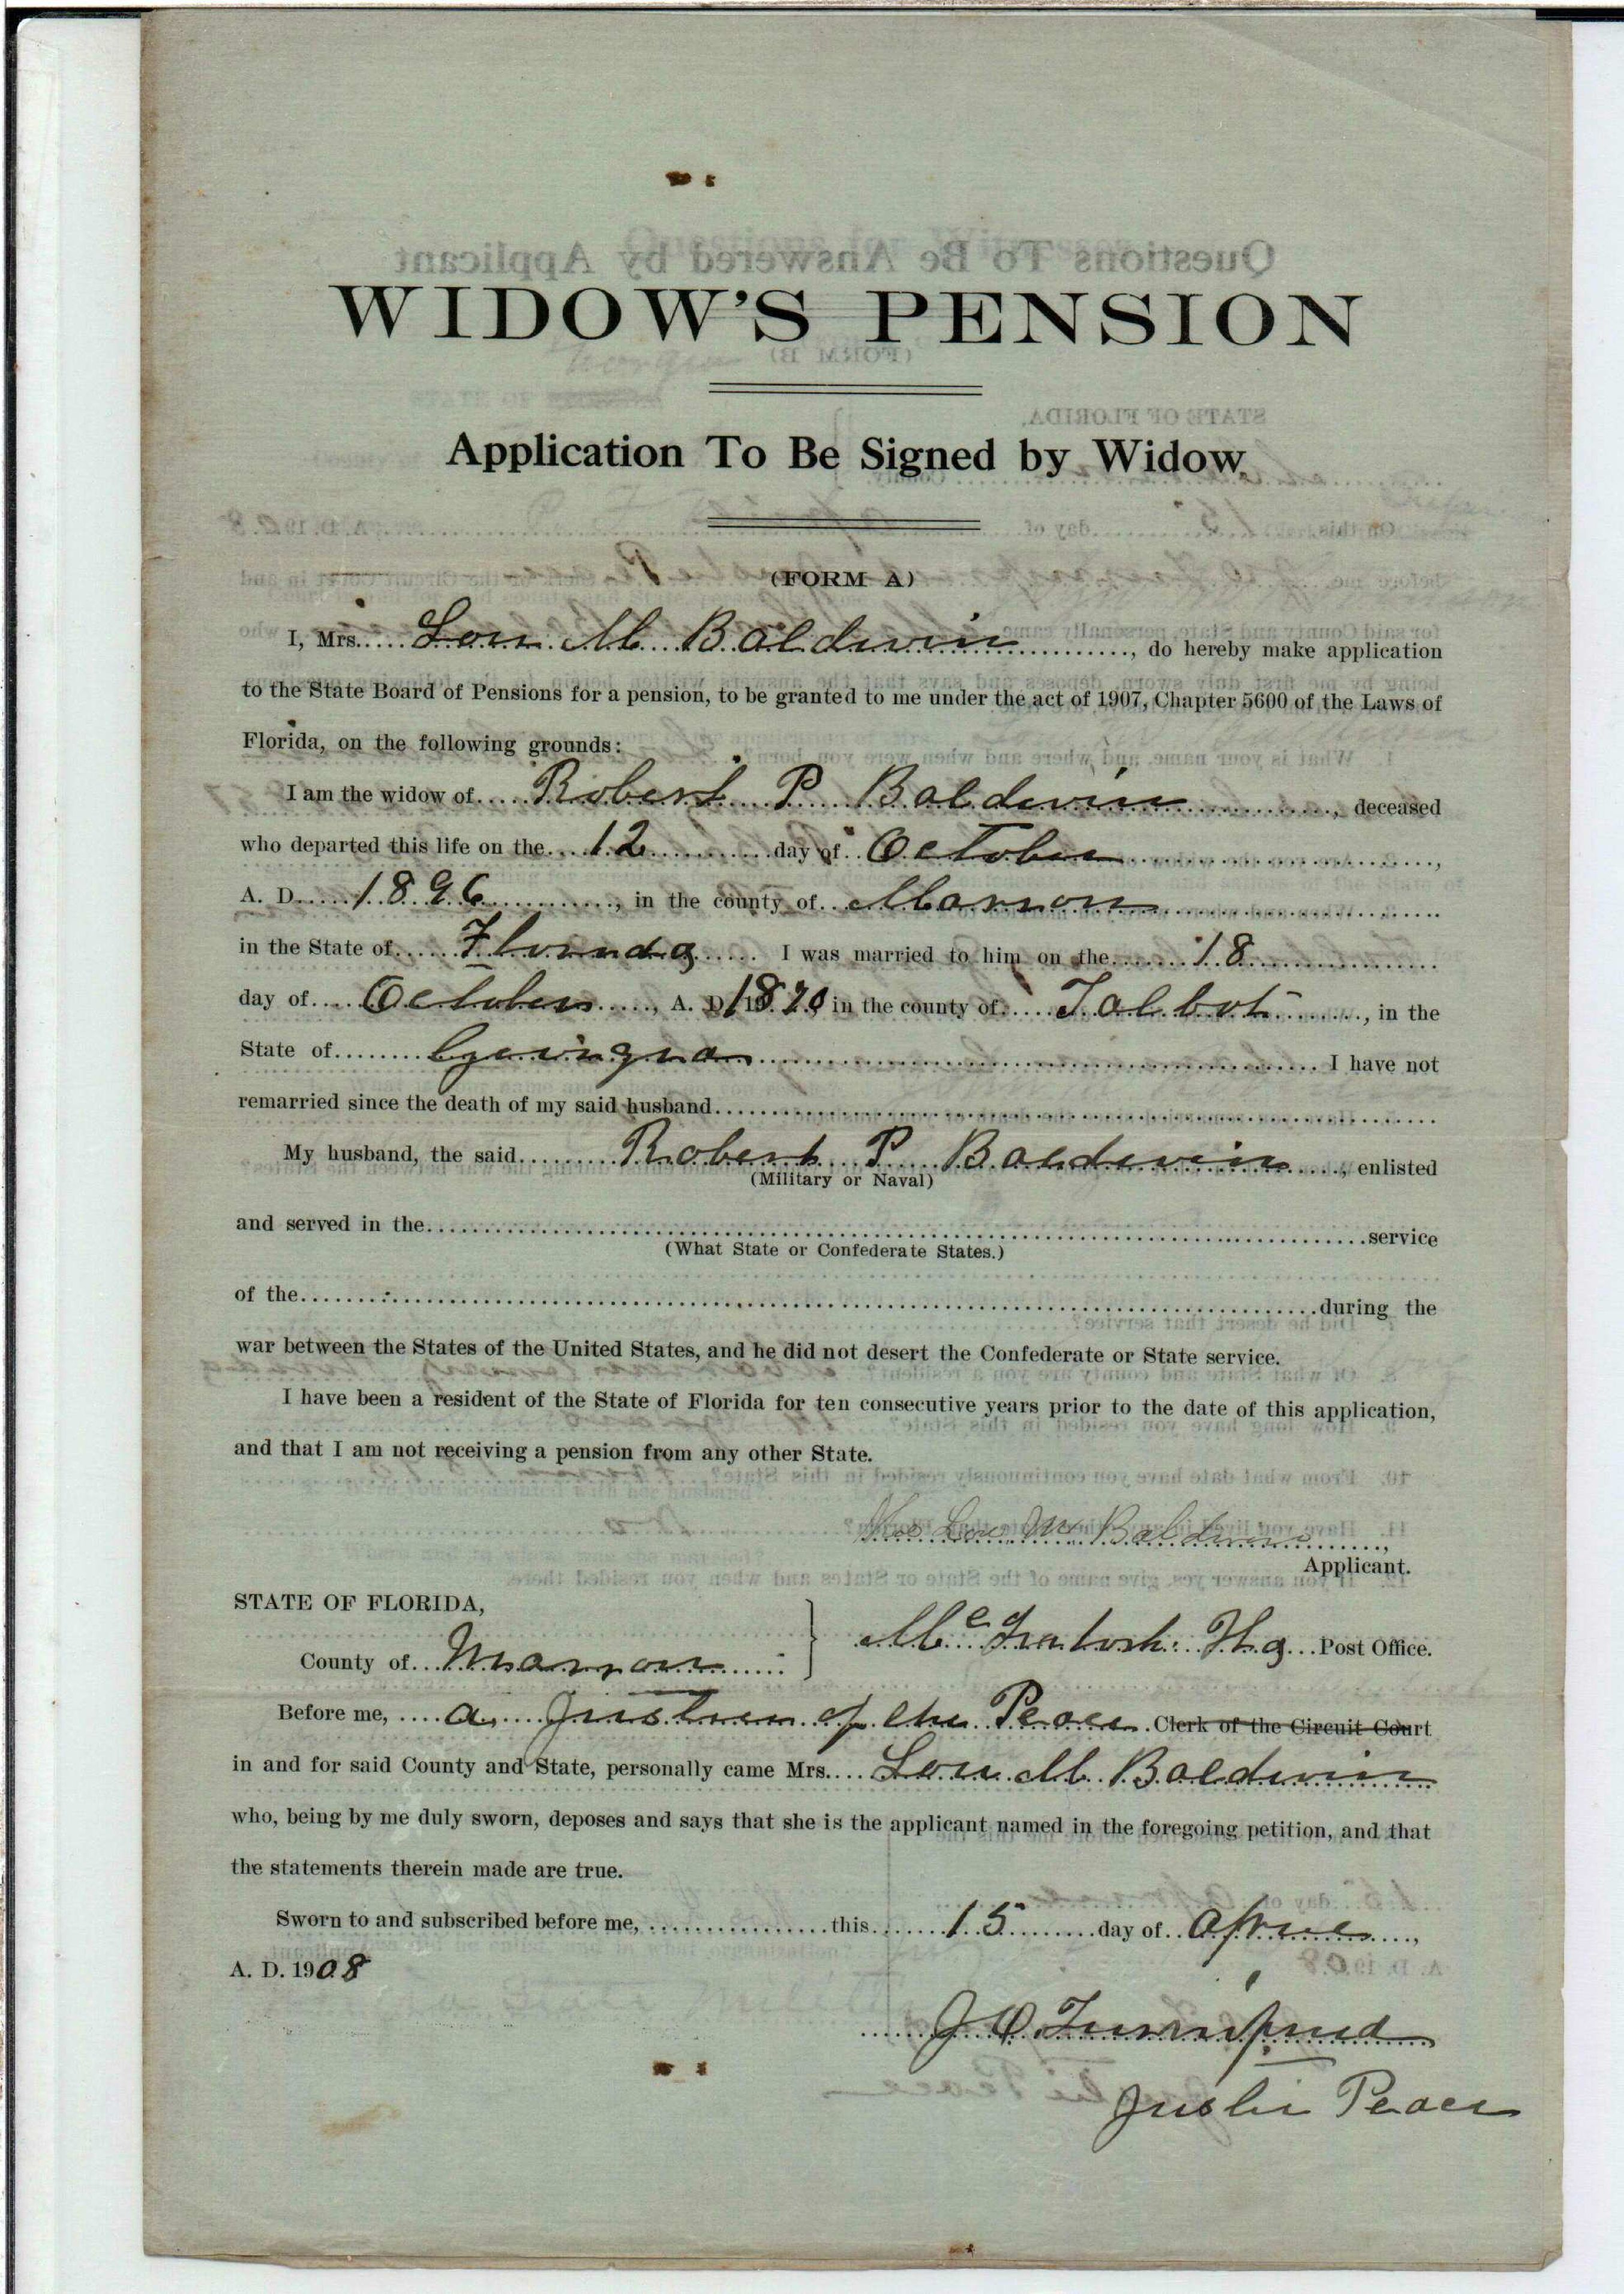 WIDOW'S PENSION
Application To Be Signed by Widow
(FORM A)
I, Mrs. Lou M. Baldwin, do hereby make application
to the State Board of Pensions for a pension, to be granted to me under the act of 1907, Chapter 5600 of the Laws of
Florida, on the following grounds:
I am the widow of Robert P Baldwin, deceased
who departed this life on the 12 day of October,
A. D. 1896, in the county of Marion
in the State of Florida I was married to him on the 18
day of October, A. D. 1870 in the county of Talbot, in the
State of Georgia I have not
remarried since the death of my said husband
My husband, the said Robert P Baldwin, enlisted
(Military or Naval)
and served in the service
(What State or Confederate States.)
of the during the
war between the States of the United States, and he did not desert the Confederate or State service.
I have been a resident of the State of Florida for ten consecutive years prior to the date of this application,
and that I am not receiving a pension from any other State.
Mrs Lou M Baldwin,
Applicant.
STATE OF FLORIDA,
McIntosh Fla Post Office.
County of Marion
Before me, a Justice of the Peace Clerk of the Circuit Court
in and for said County and State, personally came Mrs. Lou M. Baldwin
who, being by me duly sworn, deposes and says that she is the applicant named in the foregoing petition, and that
the statements therein made are true.
Sworn to and subscribed before me, this 15 day of April,
A. D. 1908
Justic Peace